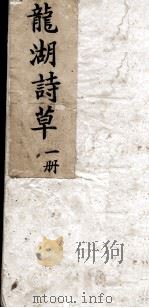 龍湖詩草
一册
研狗
mtoou.info